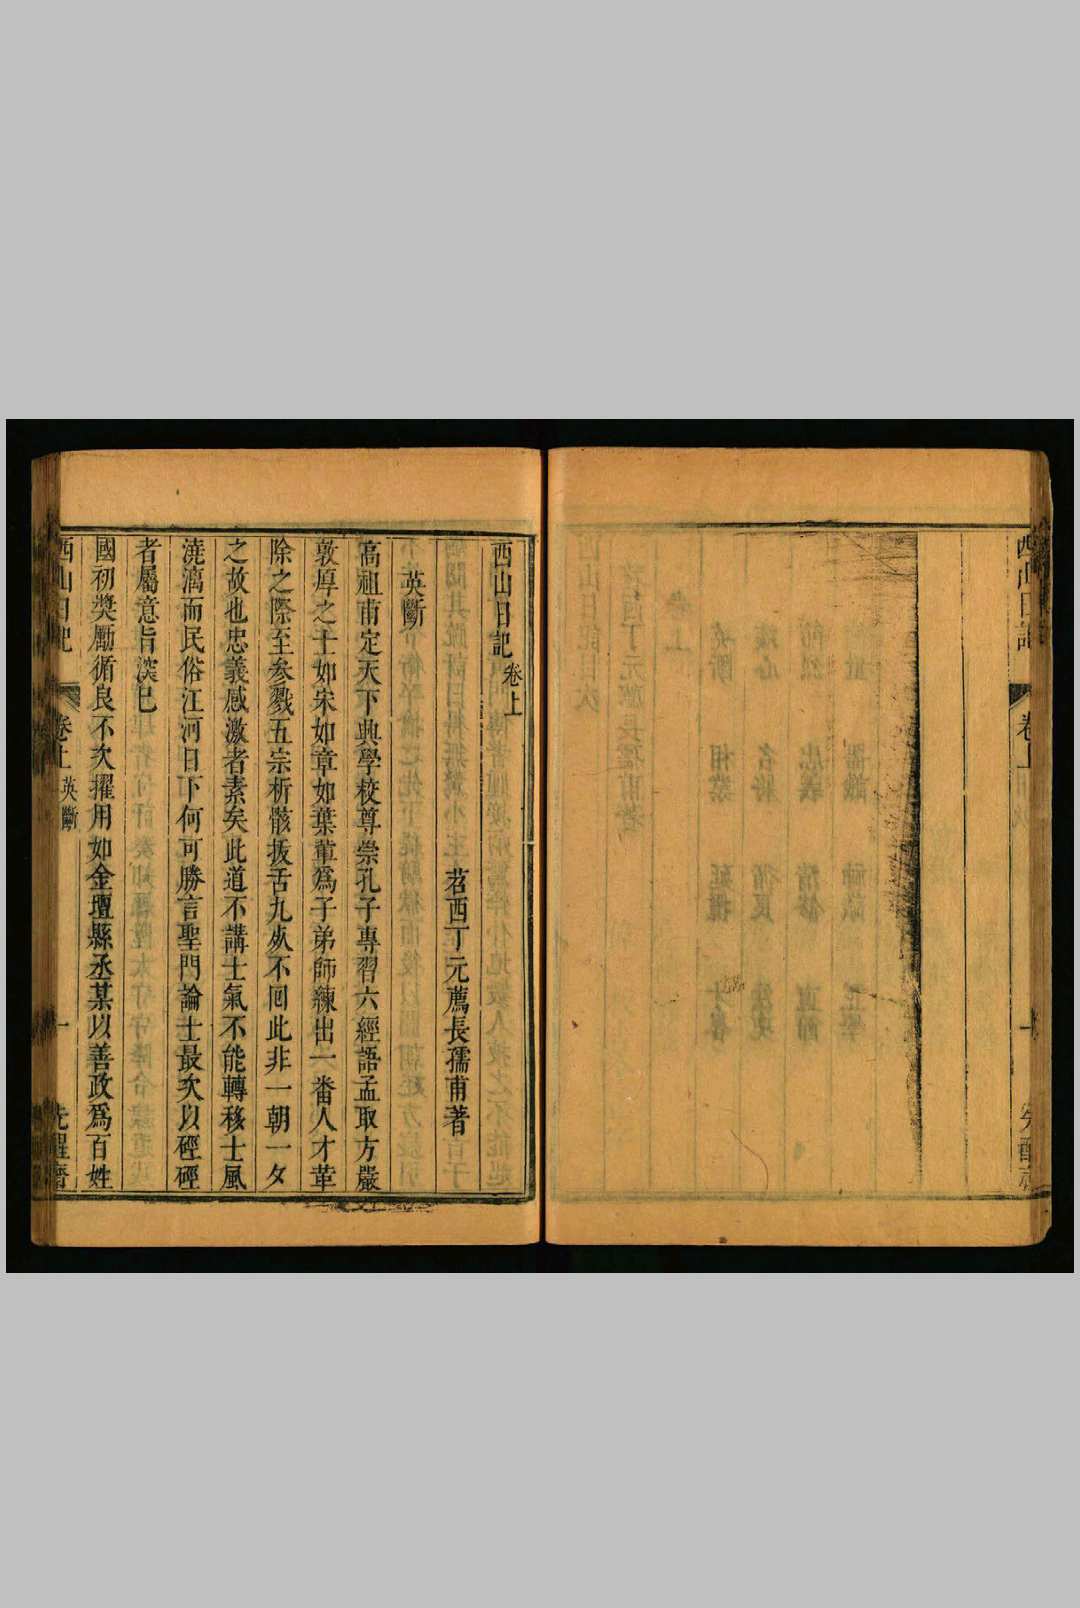 西山日記
卷上
西山日記卷上
苕西丁元薦長孺甫著
英斷
高祖甫定天下典學校尊崇孔子專習六經語孟取方嚴
敦厚之士如宋如章如葉輩爲子弟師鍊出一番人才革
除之際至参戮五宗析骸拔舌九死不囘此非一朝一夕
之故也忠義感激者素矣此道不講士氣不能轉移士風
澆漓而民俗江河日下何可勝言聖門論士最次以硜硜
者屬意旨深已
國初奬勵循良不次擢用如金壇縣丞某以善政爲百姓
西山日記
卷上
英斷
一
先醒齋